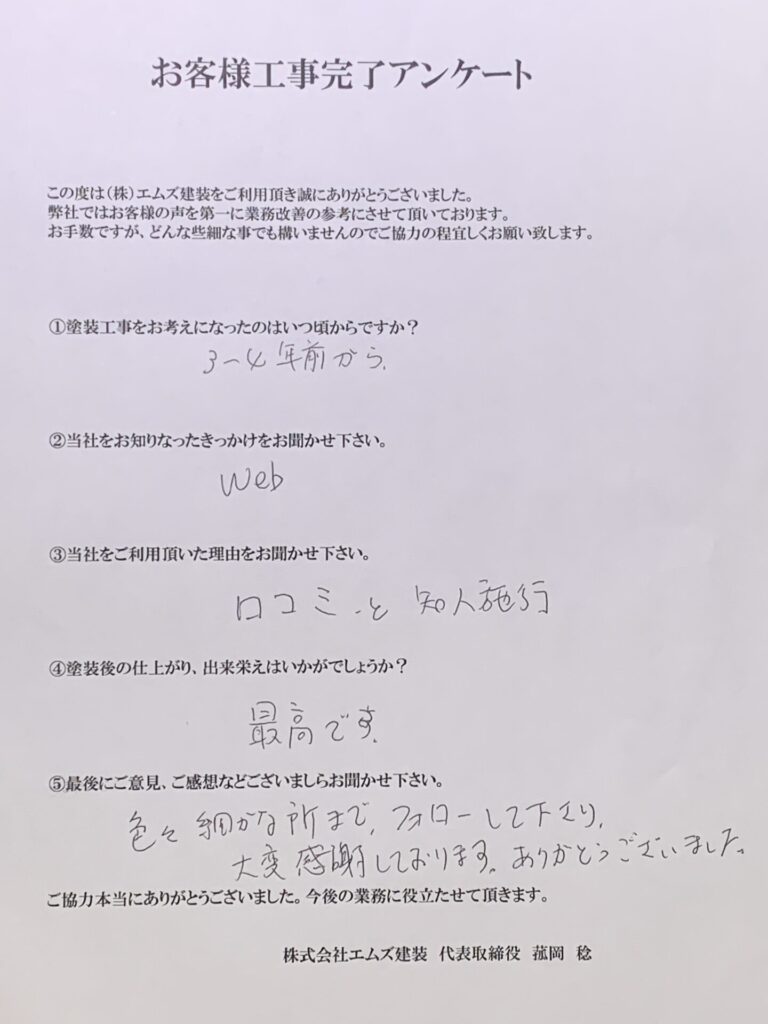 お客様工事完了アンケート
この度は（株）エムズ建装をご利用頂き誠にありがとうございました。
弊社ではお客様の声を第一に業務改善の参考にさせて頂いております。
お手数ですが、どんな些細な事でも構いませんのでご協力の程宜しくお願い致します。
①塗装工事をお考えになったのはいつ頃からですか？
3〜4年前から.
②当社をお知りなったきっかけをお聞かせ下さい。
Web
③当社をご利用頂いた理由をお聞かせ下さい。
口コミと 知人施行
④塗装後の仕上がり、出来栄えはいかがでしょうか？
最高です.
⑤最後にご意見、ご感想などございましらお聞かせ下さい。
色々細かな所まで, フォローして下さり,
大変感謝しております。ありがとうございました。
ご協力本当にありがとうございました。今後の業務に役立たせて頂きます。
株式会社エムズ建装 代表取締役 菰岡 稔